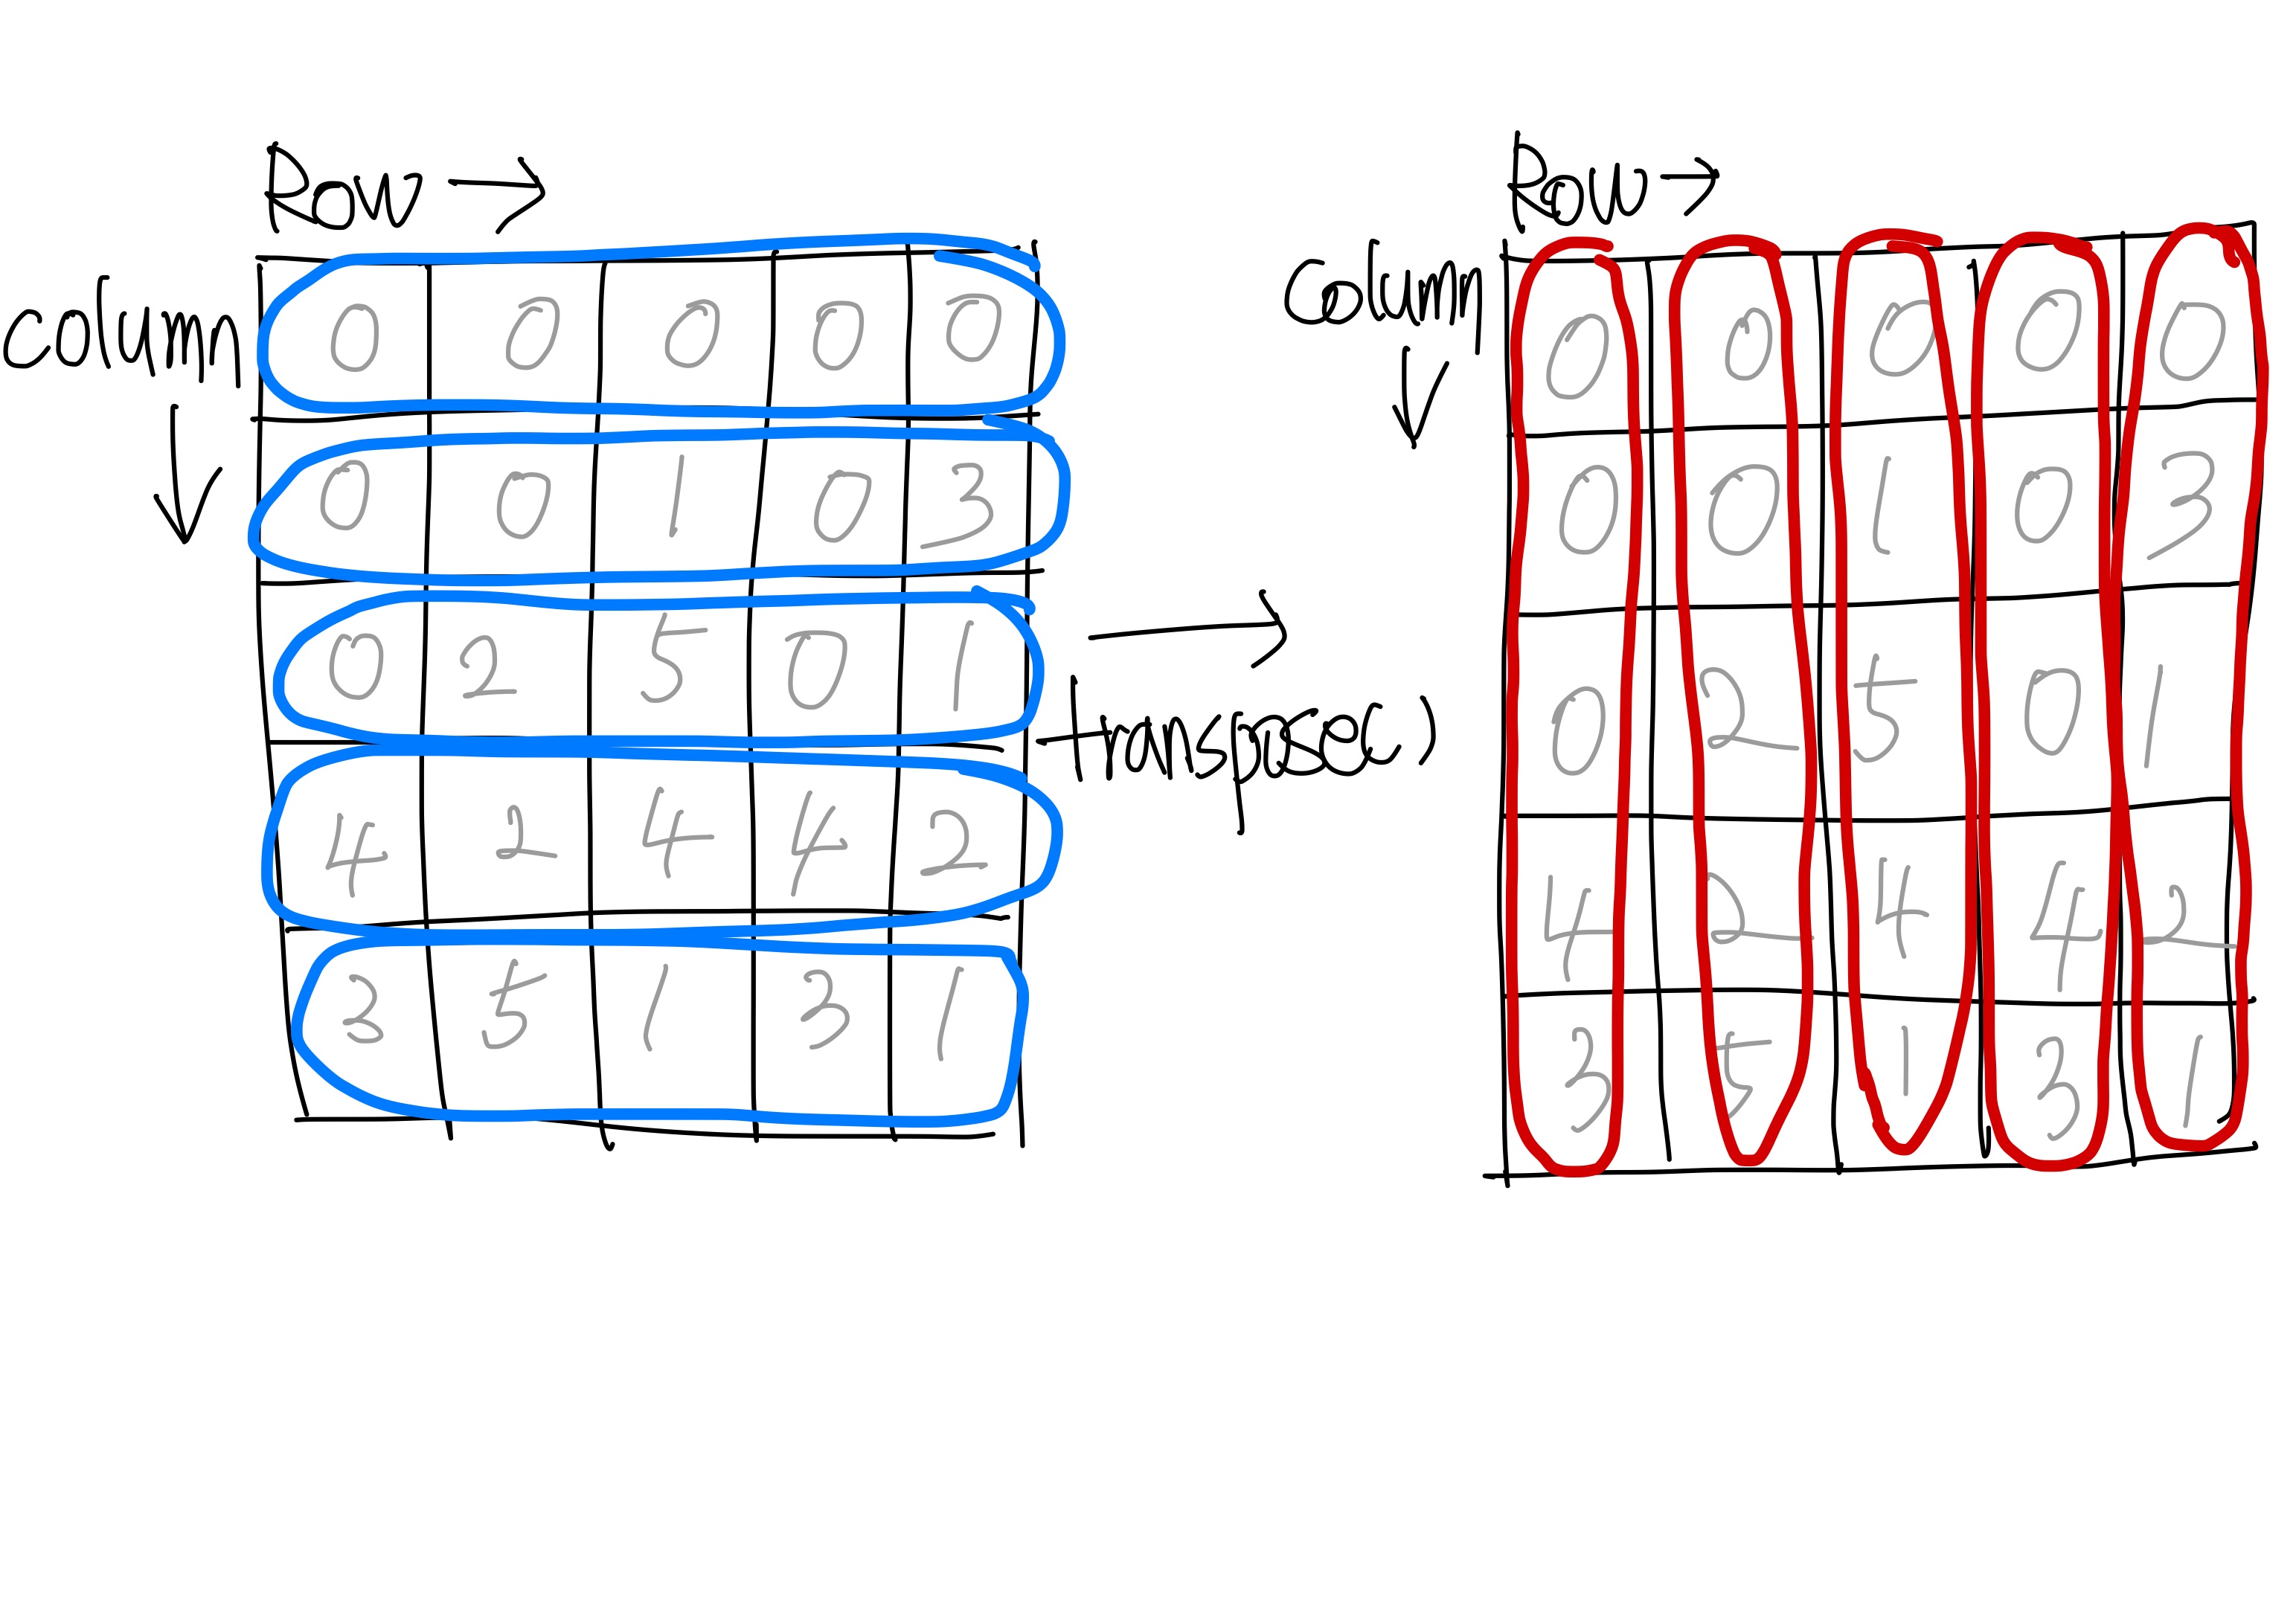 Row →
column
↓
0 0 0 0 0
0 0 1 0 3
0 2 5 0 1
4 2 4 4 2
3 5 1 3 1
→
transpose()
Row →
column
↓
0 0 0 0 0
0 0 1 0 3
0 2 5 0 1
4 2 4 4 2
3 5 1 3 1